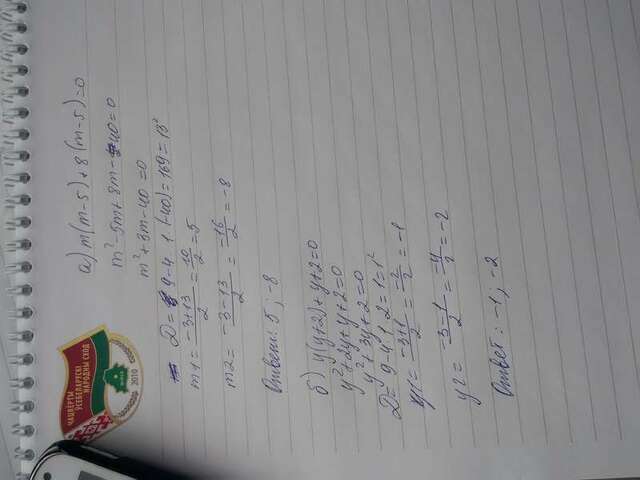 а) m(m-5)+8(m-5)=0
m²-5m+8m-40=0
m²+3m-40=0
D=9-4·1·(-40)=169=13²
m1=\frac{-3+13}{2}=\frac{10}{2}=5
m2=\frac{-3-13}{2}=\frac{-16}{2}=-8
Ответ: 5; -8
б) y(y+2)+y+2=0
y²+2y+y+2=0
y²+3y+2=0
D=9-4·1·2=1=1²
y1=\frac{-3+1}{2}=\frac{-2}{2}=-1
y2=\frac{-3-1}{2}=\frac{-4}{2}=-2
Ответ: -1; -2
ЧАЦВЁРТЫ
УСЕБЕЛАРУСКІ
НАРОДНЫ СХОД
2010